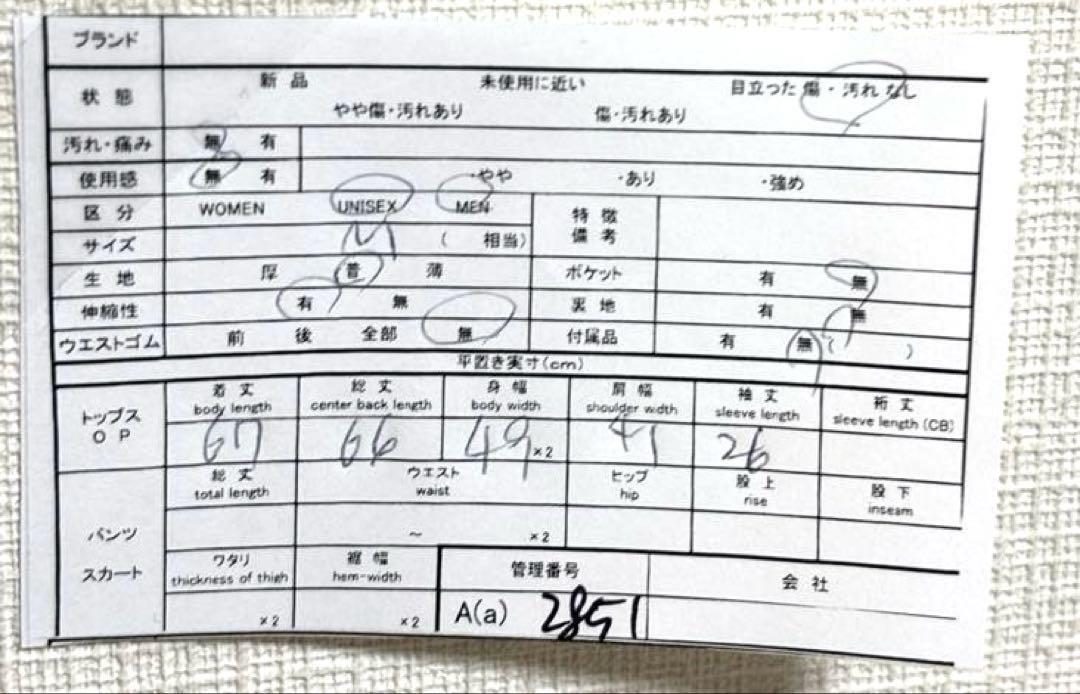 ブランド
状態 新品 未使用に近い 目立った傷・汚れなし
やや傷・汚れあり 傷・汚れあり
汚れ・痛み 無 有
使用感 無 有 ・やや ・あり ・強め
区分 WOMEN UNISEX MEN 特徴備考
サイズ M ( 相当)
生地 厚 普 薄 ポケット 有 無
伸縮性 有 無 裏地 有 無
ウエストゴム 前 後 全部 無 付属品 有 無( )
平置き実寸(cm)
トップス OP 着丈 総丈 身幅 肩幅 袖丈 裄丈
body length center back length body width shoulder width sleeve length sleeve length (CB)
67 66 49 ×2 41 26
パンツ スカート 総丈 ウエスト ヒップ 股上 股下
total length waist hip rise inseam
～ ×2
ワタリ 裾幅 管理番号 会社
thickness of thigh hem-width
×2 ×2 A(a) 2851